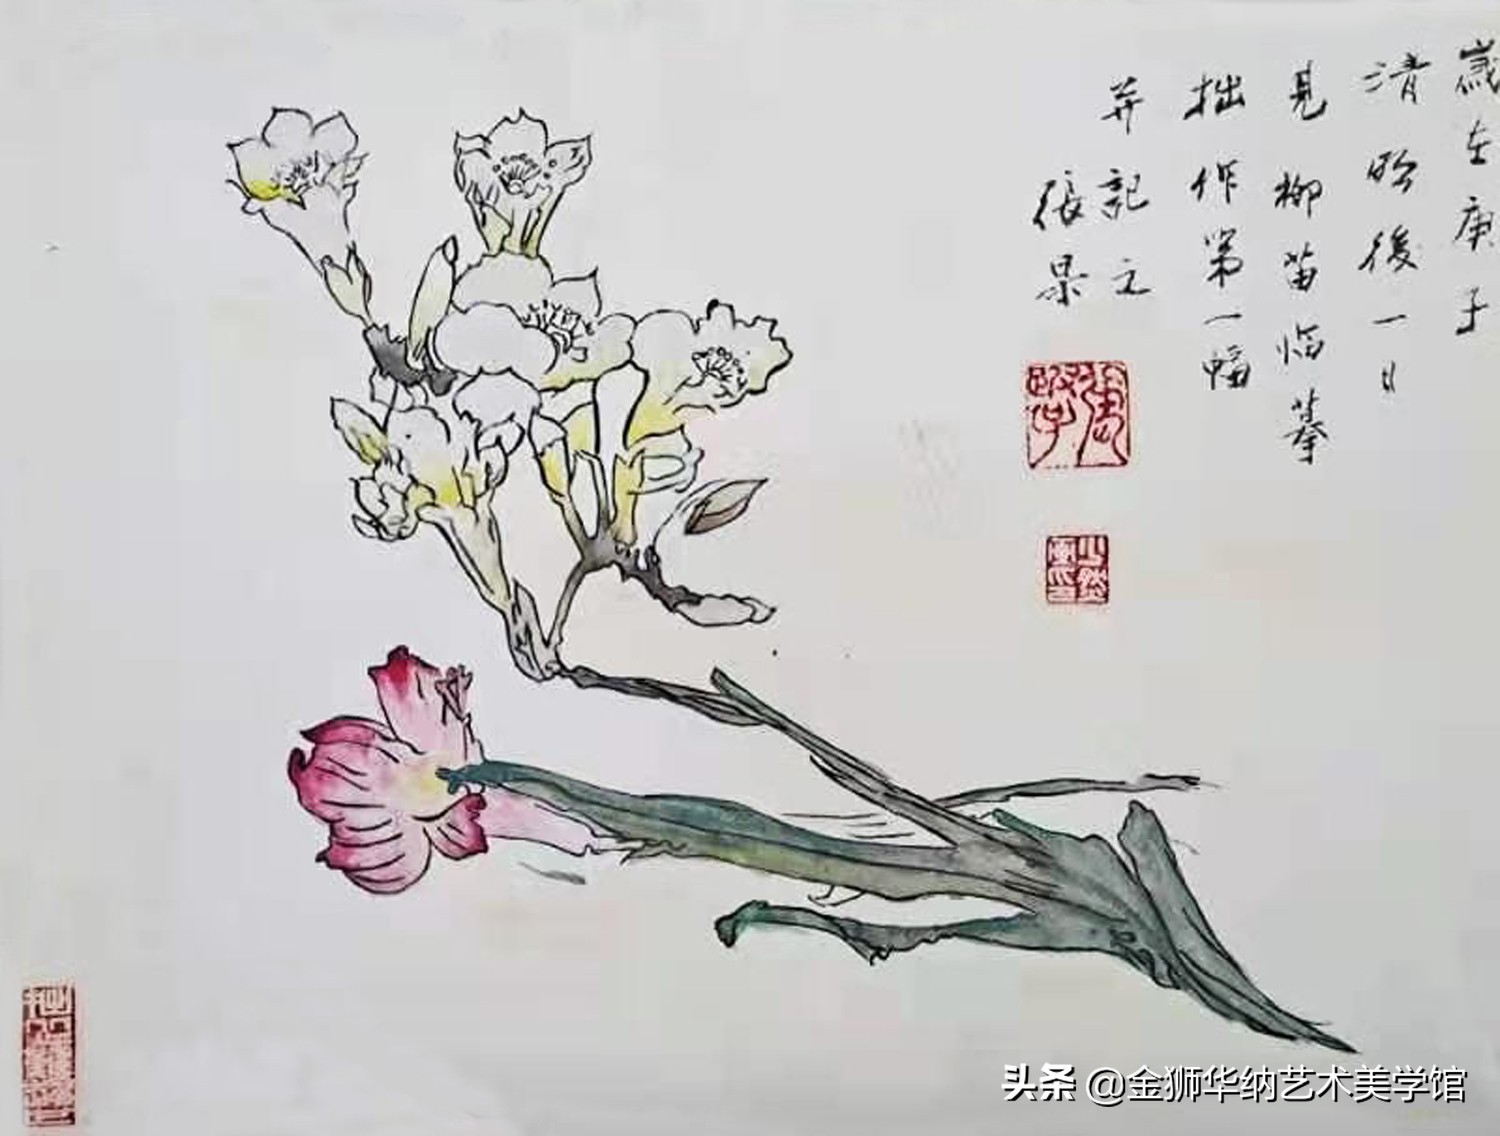 歲在庚子
清明後一日
見柳笛临摹
拙作第一幅
并記之
張杲
头条 @金狮华纳艺术美学馆